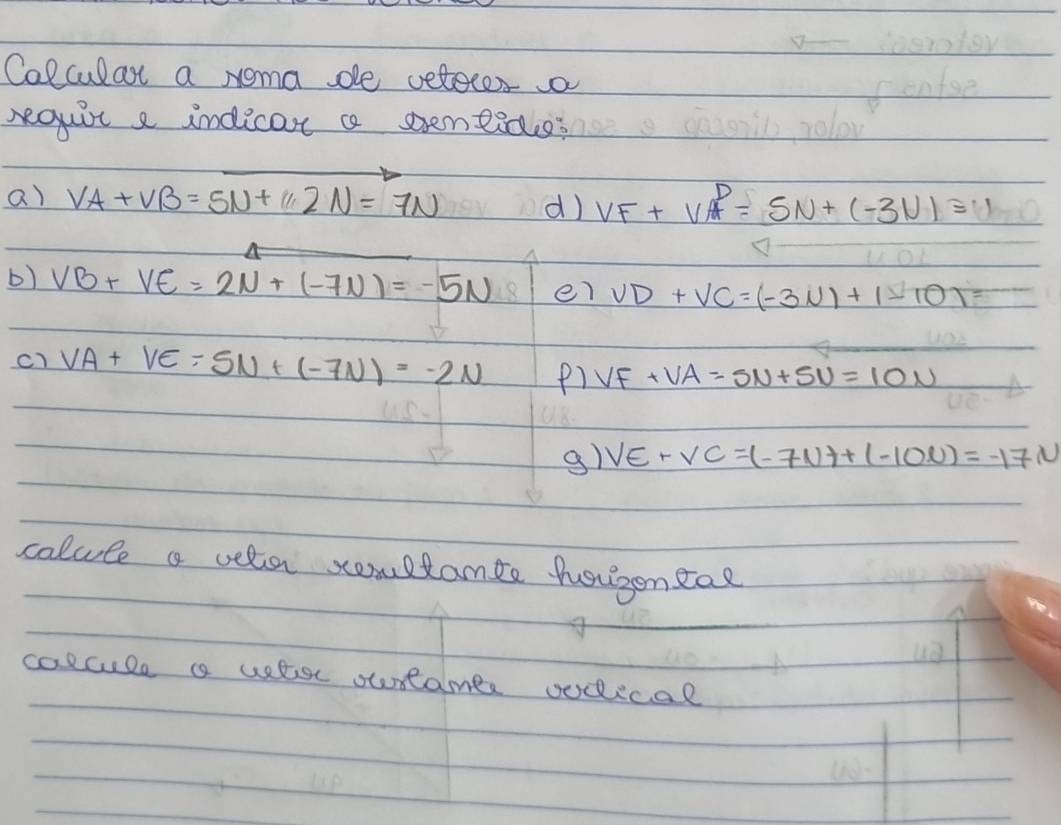 Calcular a soma de vetores a
seguir e indicar o sentido:
a) VA + VB = 5N + 2N = 7N
b) VB + VE = 2N + (-7N) = -5N
c) VA + VE = 5N + (-7N) = -2N
d) VF + VD = 5N + (-3N) =
e) VD + VC = (-3N) + (-10) =
f) VF + VA = 5N + 5N = 10N
g) VE + VC = (-7N) + (-10N) = -17N
calcule o vetor resultante horizontal
calcule o vetor vertical